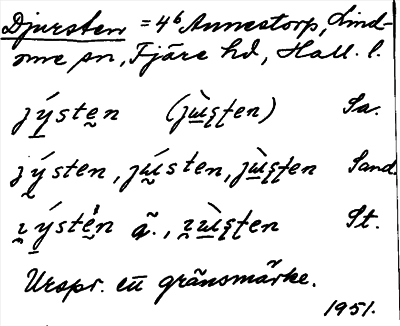 Djursten = 4⁶ Annestorp, Lind-
ome sn, Fjäre hd, Hall. l.
jý̱ste̮n (jẁ̱ʂʈen) Sa.
jý̮sten, jẃ̮sten, jẁ̱ʂʈen Sand.
ý̱ste̮n ä., ẁ̱ʂʈen St.
Urspr. ett gränsmärke.
1951.